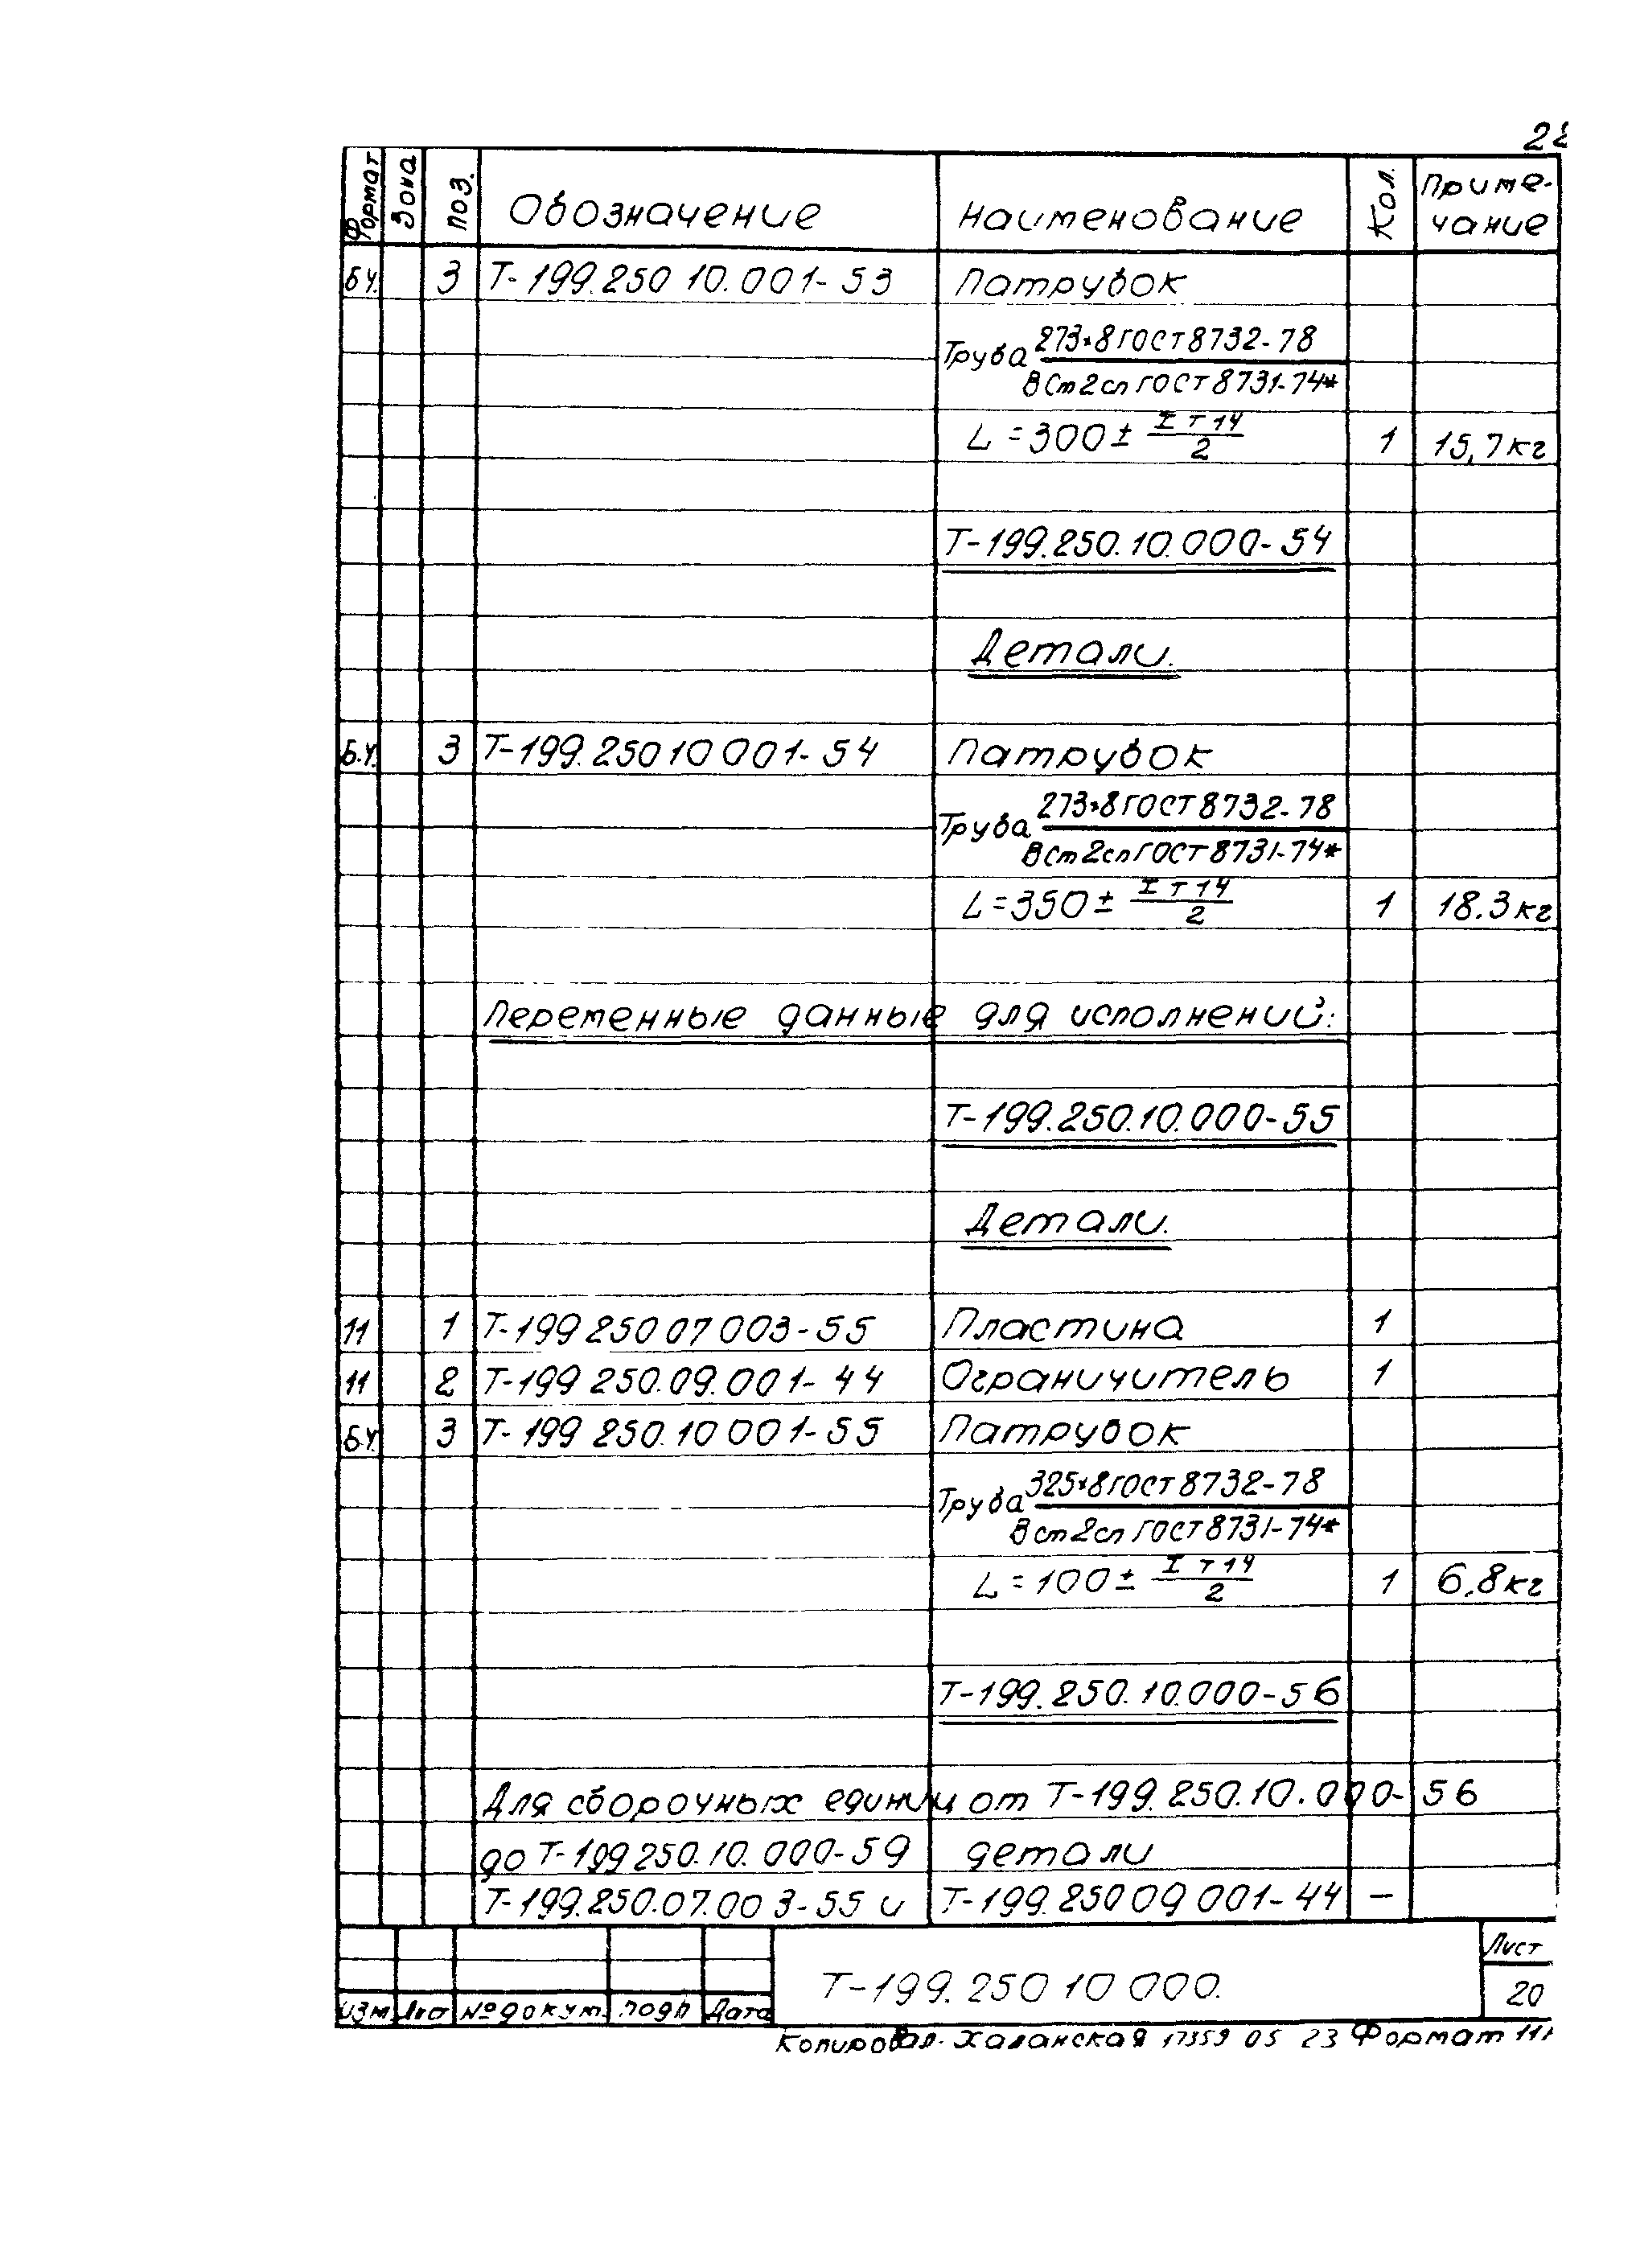 Формат Зона Поз. Обозначение Наименование Кол. Приме-
чание
БЧ. 3 Т-199.250 10.001-53 Патрубок
Труба 273*8 ГОСТ 8732-78
ВСт2сп ГОСТ 8731-74*
L=300± IT14/2 1 15,7кг
Т-199.250.10.000-54
Детали.
Б.Ч. 3 Т-199.250 10 001-54 Патрубок
Труба 273*8 ГОСТ 8732-78
ВСт2сп ГОСТ 8731-74*
L=350± IT14/2 1 18.3кг
Переменные данные для исполнений:
Т-199.250.10.000-55
Детали.
11 1 Т-199 250 07 003-55 Пластина 1
11 2 Т-199 250.09.001-44 Ограничитель 1
Б.Ч. 3 Т-199 250.10 001-55 Патрубок
Труба 325*8 ГОСТ 8732-78
Вст2сп ГОСТ 8731-74*
L=100± IT14/2 1 6.8кг
Т-199.250.10.000-56
Для сборочных единиц от Т-199.250.10.000-56
до Т-199 250.10.000-59 детали
Т-199.250.07.003-55 и Т-199.250 09 001-44 –
Т-199.250 10 000.
Лист
20
Изм. Лист № докум. Подп Дата
Копировал. Халанская 17359 05 23 Формат 11